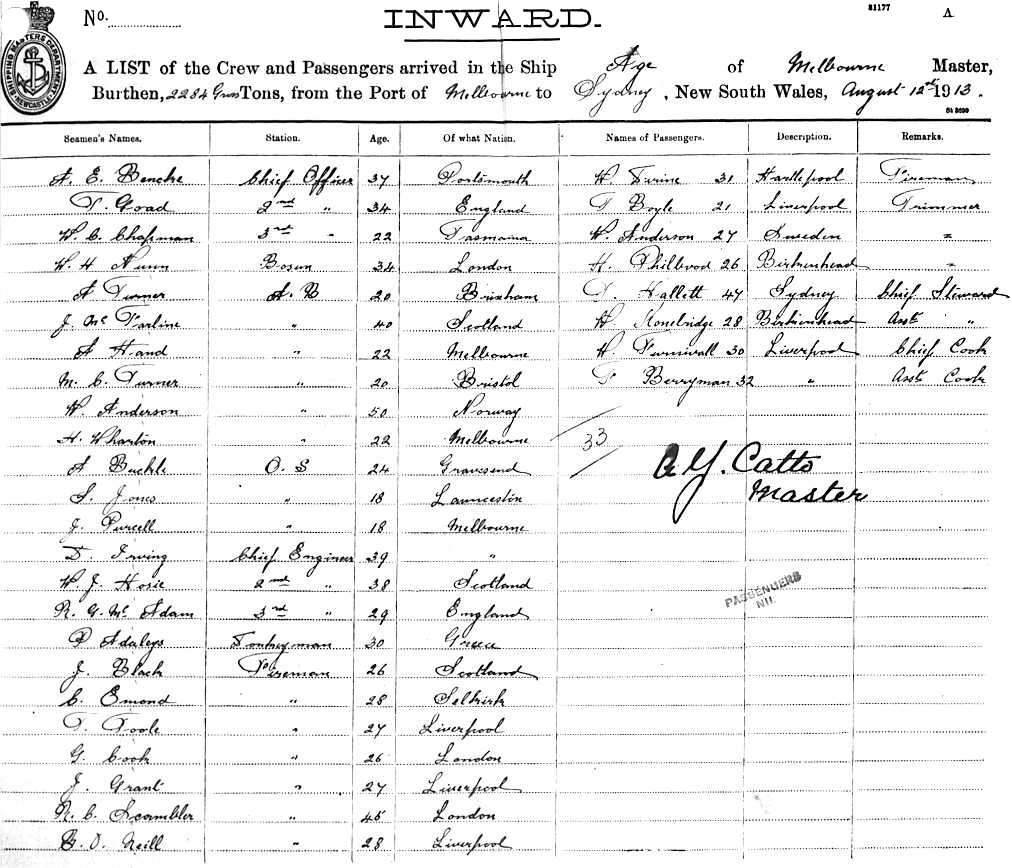 No.
INWARD.
81177
A
SHIPPING MASTERS DEPARTMENT NEWCASTLE
A LIST of the Crew and Passengers arrived in the Ship Age of Melbourne Master,
Burthen, 2284 Gross Tons, from the Port of Melbourne to Sydney, New South Wales, August 12th 1913.
St 3690
Seamen's Names. Station. Age. Of what Nation. Names of Passengers. Description. Remarks.
A. E. Bencke Chief Officer 37 Portsmouth W. 31 Hartlepool Fireman
T. Goad 2nd " 34 England T Boyle 21 Liverpool Trimmer
W. C. Chapman 3rd " 22 Tasmania W. Anderson 27 Sweden "
W. H Nunn Bosun 34 London H. 26 Birkenhead "
A Turner A. B 20 Brixham T. Hallett 47 Sydney Chief Steward
J. Mc Farline " 40 Scotland W 28 Birkenhead Asst "
A Hand " 22 Melbourne W. Furnivall 30 Liverpool Chief Cook
M. C. Turner " 20 Bristol T Berryman 32 " Asst Cook
W Anderson " 50 Norway
H. Wharton " 22 Melbourne 33
A Buckle O. S 24 Gravesend
S. Jones " 18 Launceston
J. Purcell " 18 Melbourne
D. Irving Chief Engineer 39 "
W. J. Hosie 2nd " 38 Scotland
R. G. Mc Adam 3rd " 29 England
P Adaleys Donkeyman 30 Greece
J. Black Fireman 26 Scotland
C. Emond " 28 Selkirk
T. Toole " 27 Liverpool
G. Cook " 26 London
J. Grant " 27 Liverpool
R. C. Scambler " 45 London
B. O. Neill " 28 Liverpool
A. J. Catto
Master
PASSENGERS
NIL